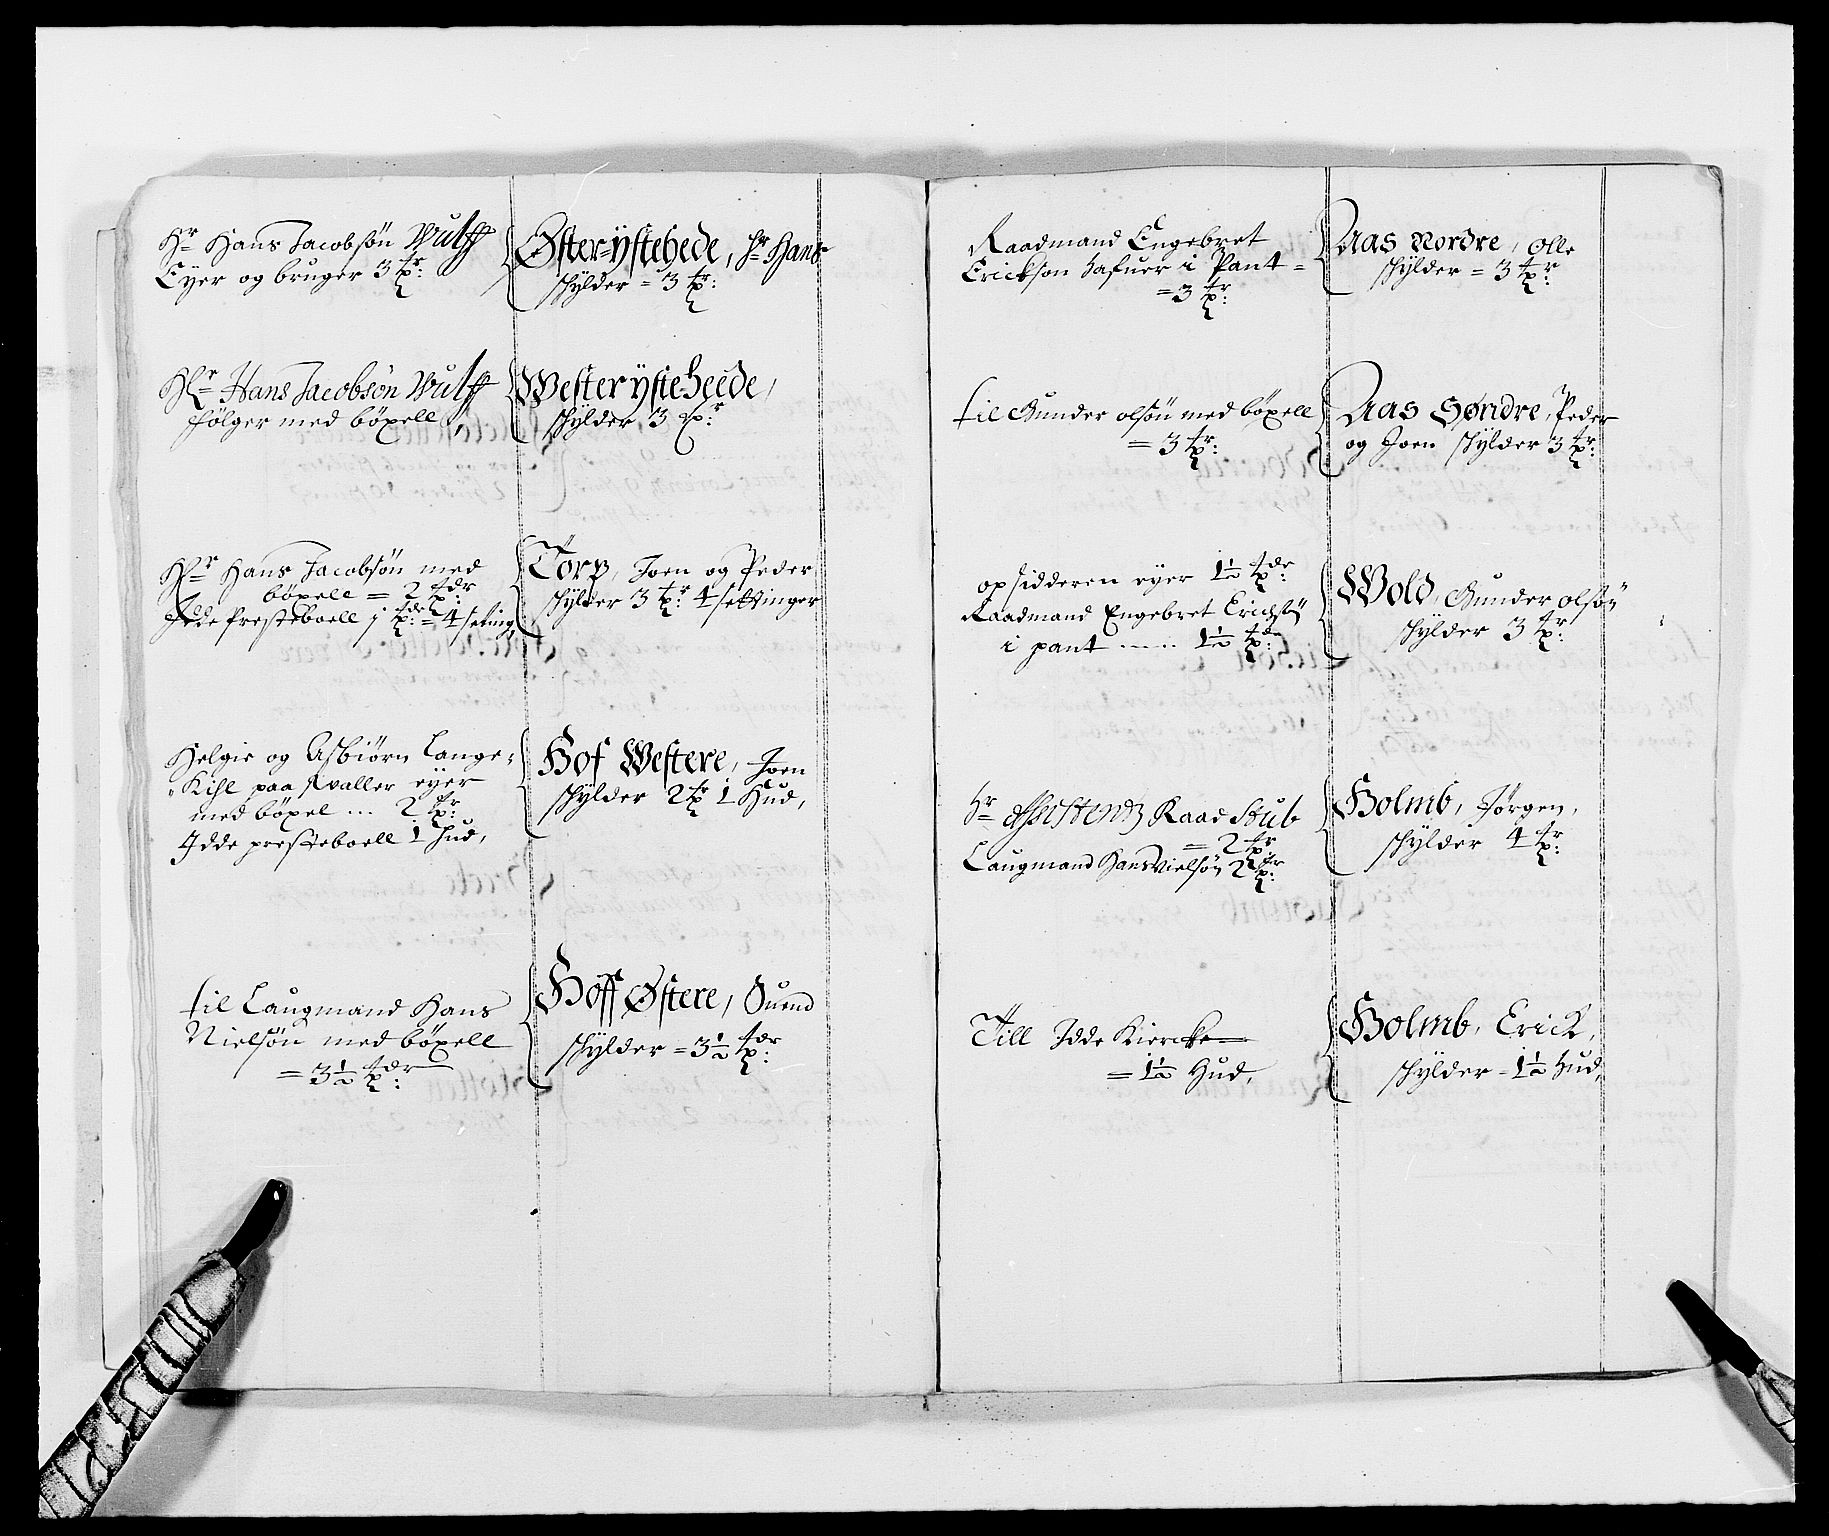 Hr Hans Jacobsøn Wulff
Eyer og bruger 3 tpr:
Øster ÿstehede, Hr Hans
schÿlder = 3 tpr:
Hr Hans Jacobsøn Wulff
følger med böxell,
Wester ÿsteheede,
schÿlder 3 tpr:
Hr Hans Jacobsøn med
böxell = 2 tpdr:
Idde Presteboell j tpdr: = 4 setting,
Torp, Joen og Peder
schÿlder 3 tpr: 4 settinger
Helgie og Asbiørn Lange-
Kihl paa Kvaller eyer
med böxel ... 2 tpr:
Idde presteboell 1 hud,
Hof Westere, Joen
schÿlder 2 tpr 1 Hud,
til Laugmand Hans
Nielsøn med böxell
= 3½ tpdr:
Hoff Østere, Suend
schÿlder = 3½ tpdr:
Raadmand Engebret
Erickson hafuer i Pant =
= 3 tpr:
Aas Nordre, Olle
schÿlder = 3 tpr:
til Gunder olsøn med böxell
= 3 tpr:
Aas Søndre, Peder
og Joen schÿlder 3 tpr:
opsidderen eyer 1½ tpdr:
Raadmand Engebret Erichsøn
i pant ...... 1½ tpdr:
Wold, Gunder olsøn
schÿlder 3 tpr:
Hr Raad Stub
= 2 tpr
Laugmand Hans Nielsøn 2 tpr:
Holmb, Jørgen,
schÿlder 4 tpr:
Till Idde Kiercke
= 1½ Hud,
Holmb, Erick,
schÿlder - 1½ hud,